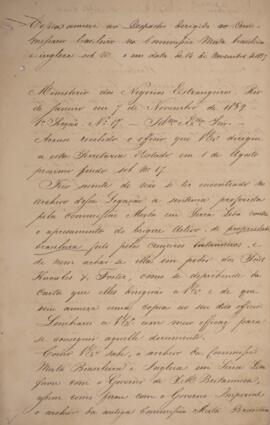 Copia annexa ao Despacho dirigido ao Com-
missario brasileiro na Commissão Mixta brasileira
e ingleza sob nº   e em data de 14 de Novembro de 1859
Ministerio dos Negocios Estrangeiros. Rio
de Janeiro em 7 de Novembro de 1859.
Secção. Nº 17. Illmo Exmo Snr.
Accuso recebido o officio que V Exª dirigiu
a esta Secretaria d'Estado em 1 de Agosto
proximo findo sob nº 17.
Fico sciente de não se ter encontrado no
archivo dessa Legação, a sentença proferida
pela Commissão Mixta em Serra Leôa contra
o apresamento do brigue Activo, de propriedade
brasileira feito pelo cruzeiro britannico; e
de nem achar-se ella em poder dos Snrs
Knowles & Foster, como se deprehende da
carta que elles dirigirão a V Exª e de que
veio annexa uma copia ao seu dito officio.
Lembrarei a V Exª com mais efficaz para
se conseguir aquelle documento.
Como V Exª sabe, o archivo da Commissão
Mixta Brasileira e Ingleza em Serra Leôa
ficou com o Governo de S. M. Britannica,
assim como ficou com o Governo Imperial
o archivo da antiga Commissão Mixta Brasileira